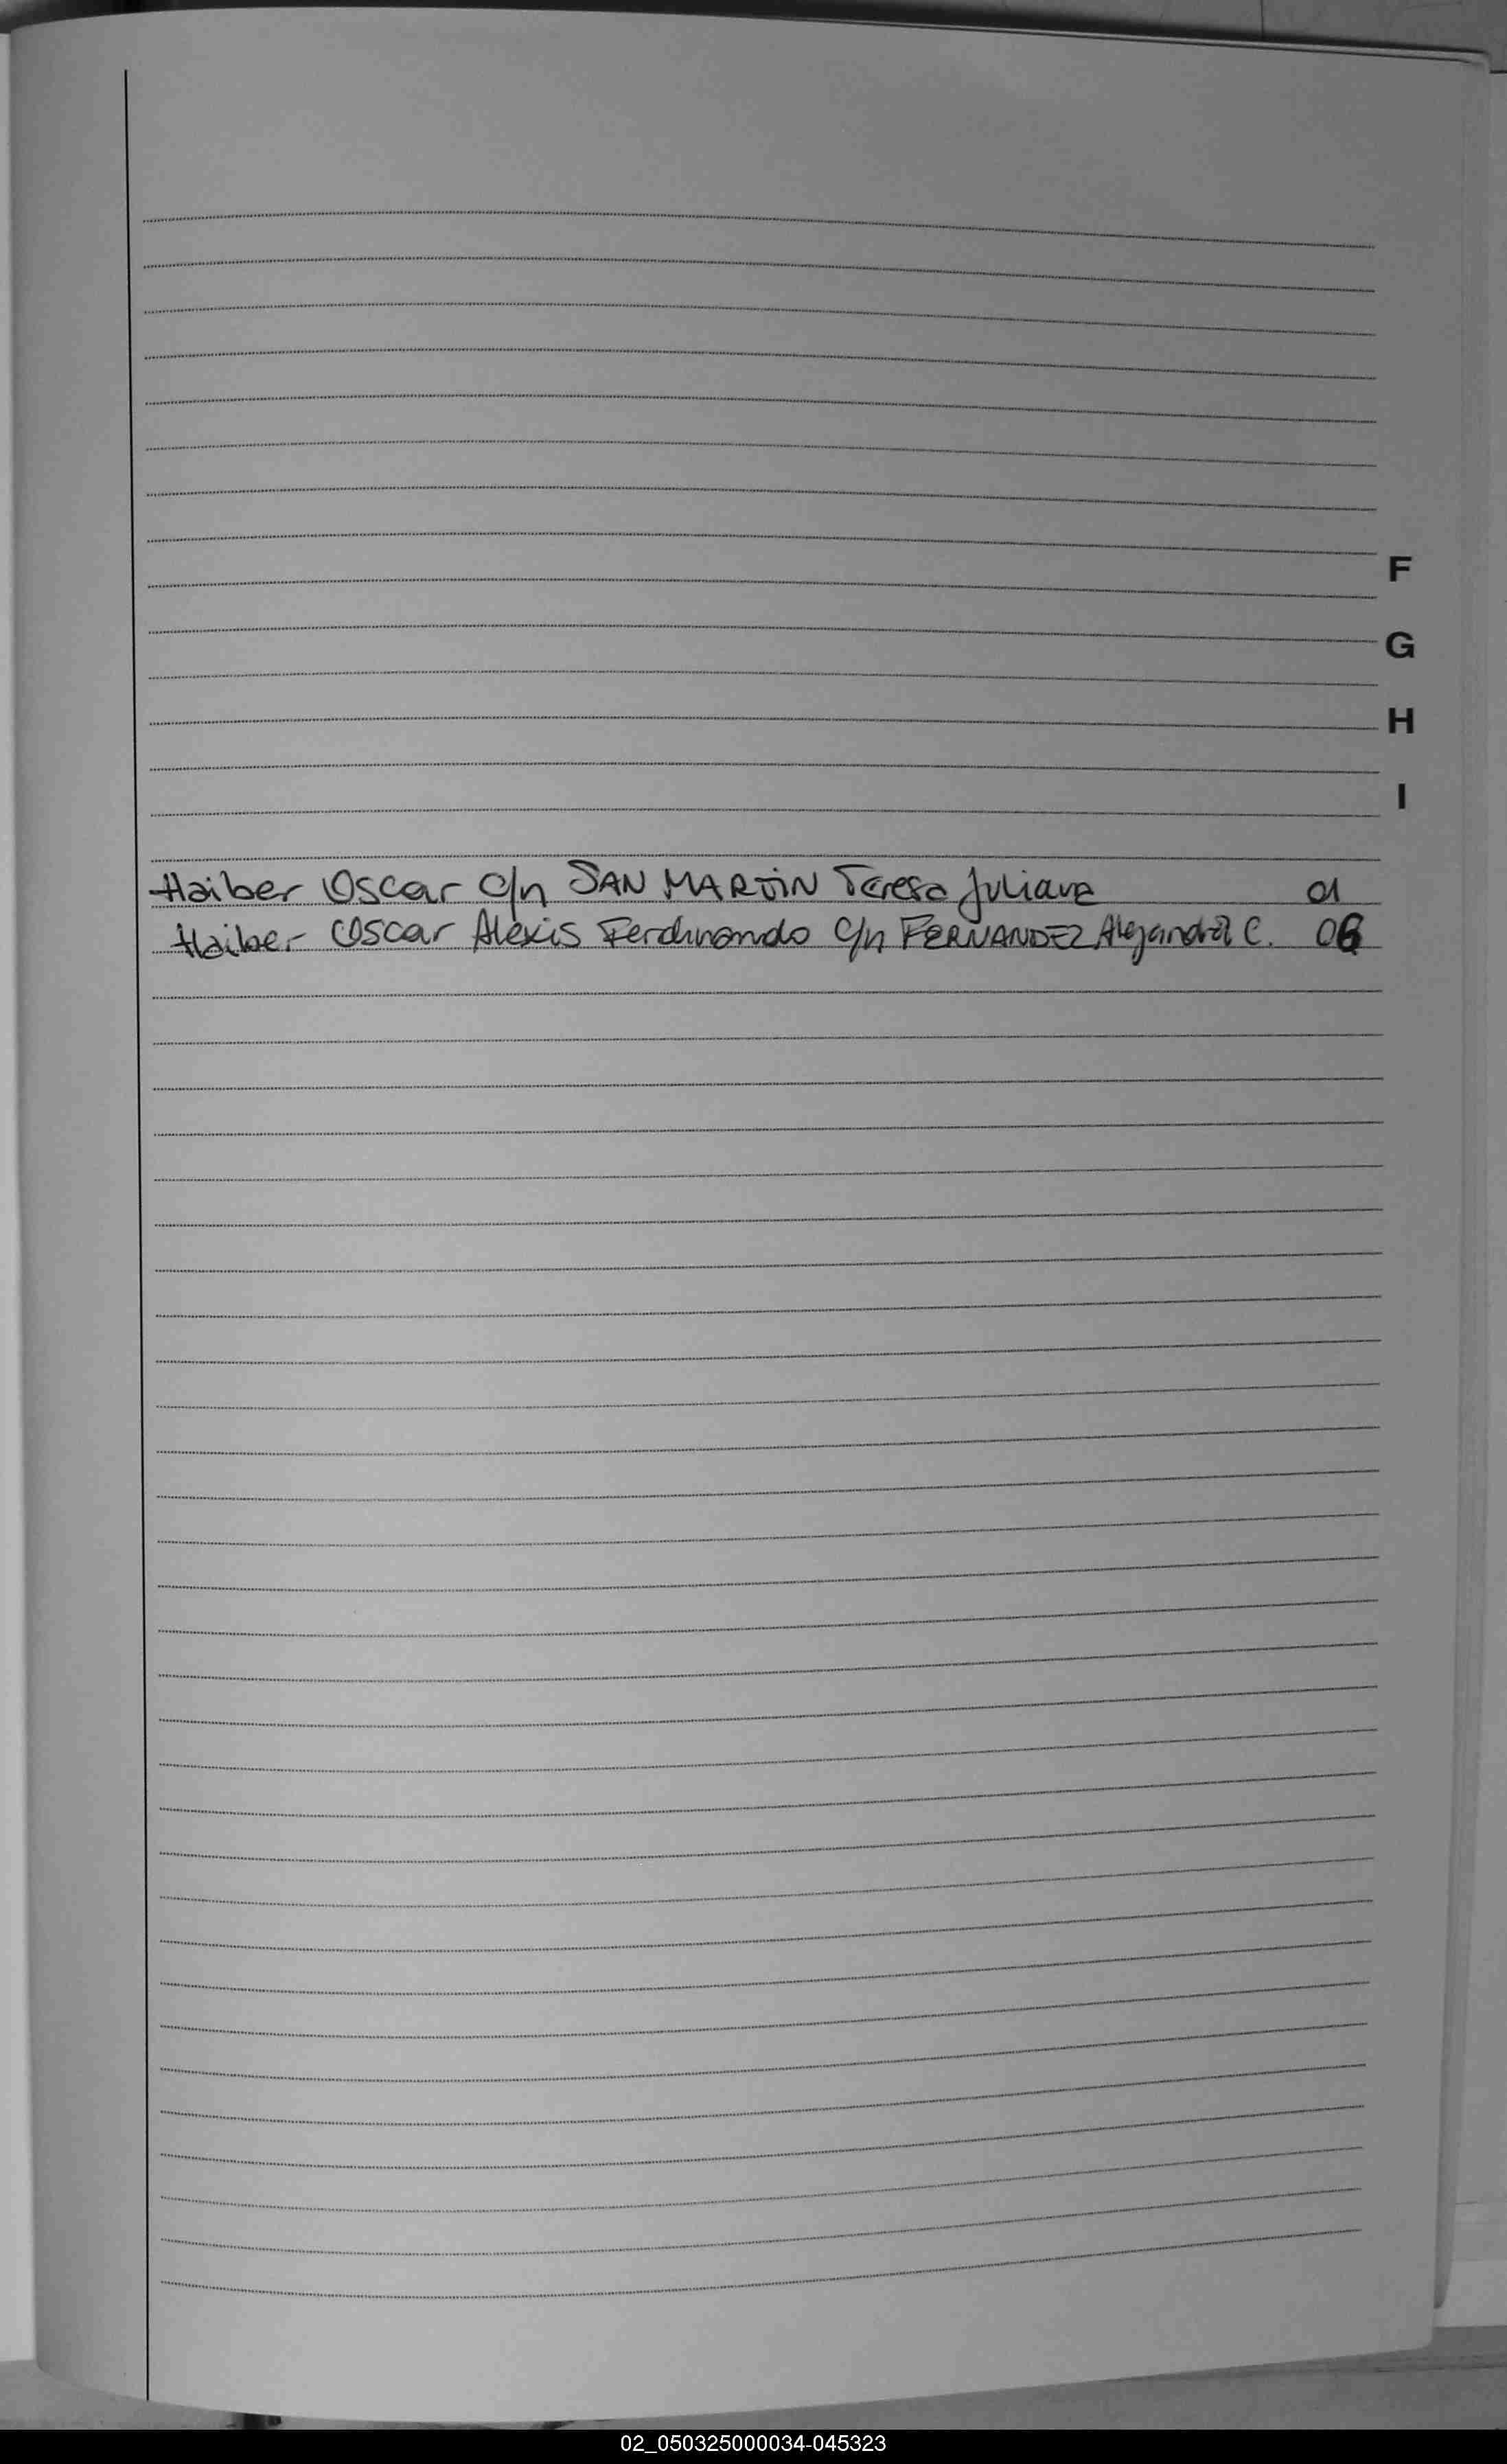 F
G
H
I
Haiber Oscar c/n SAN MARTIN Teresa Juliana 01
Haiber Oscar Alexis Ferdinando c/n FERNANDEZ Alejandra C. 06
02_050325000034-045323